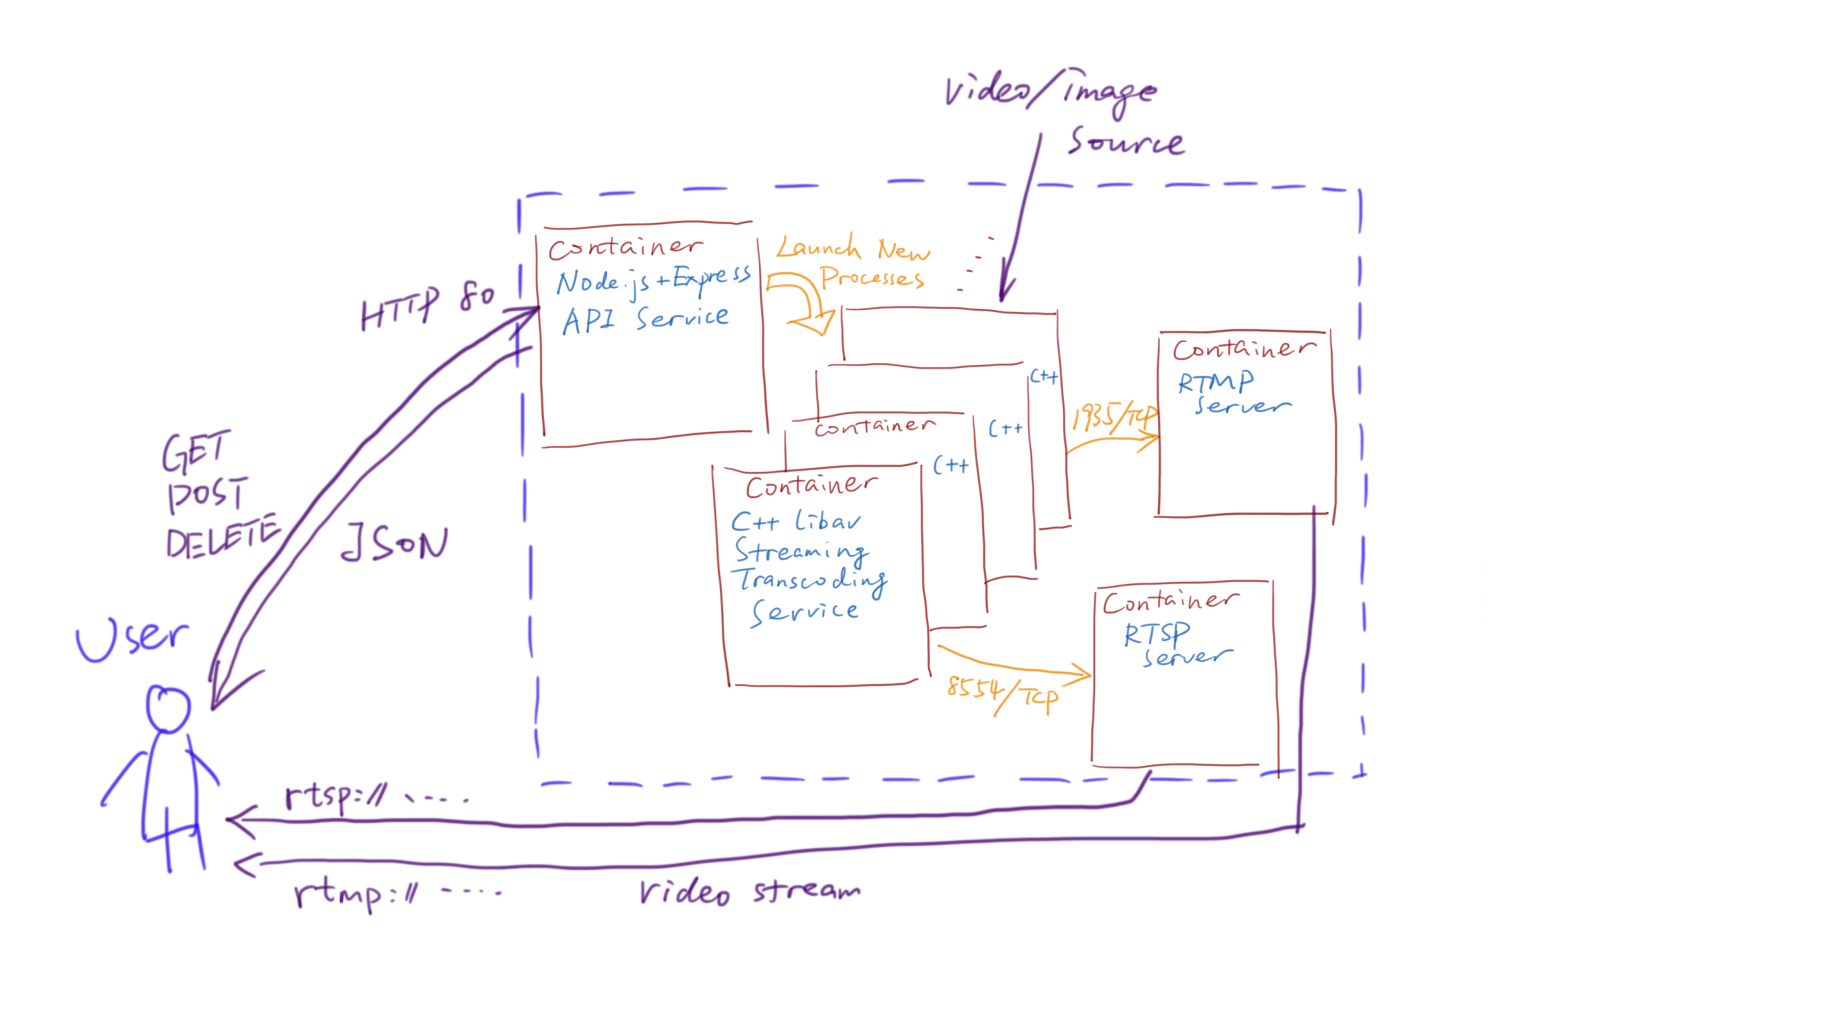 Video/Image
Source
Container
Node.js+Express
API Service
Launch New
Processes
HTTP 80
GET
POST
DELETE
JSON
User
C++
C++
C++
Container
Container
C++ Libav
Streaming
Transcoding
Service
1935/TCP
Container
RTMP
Server
8554/TCP
Container
RTSP
Server
rtsp:// ·----
rtmp:// ----
Video stream